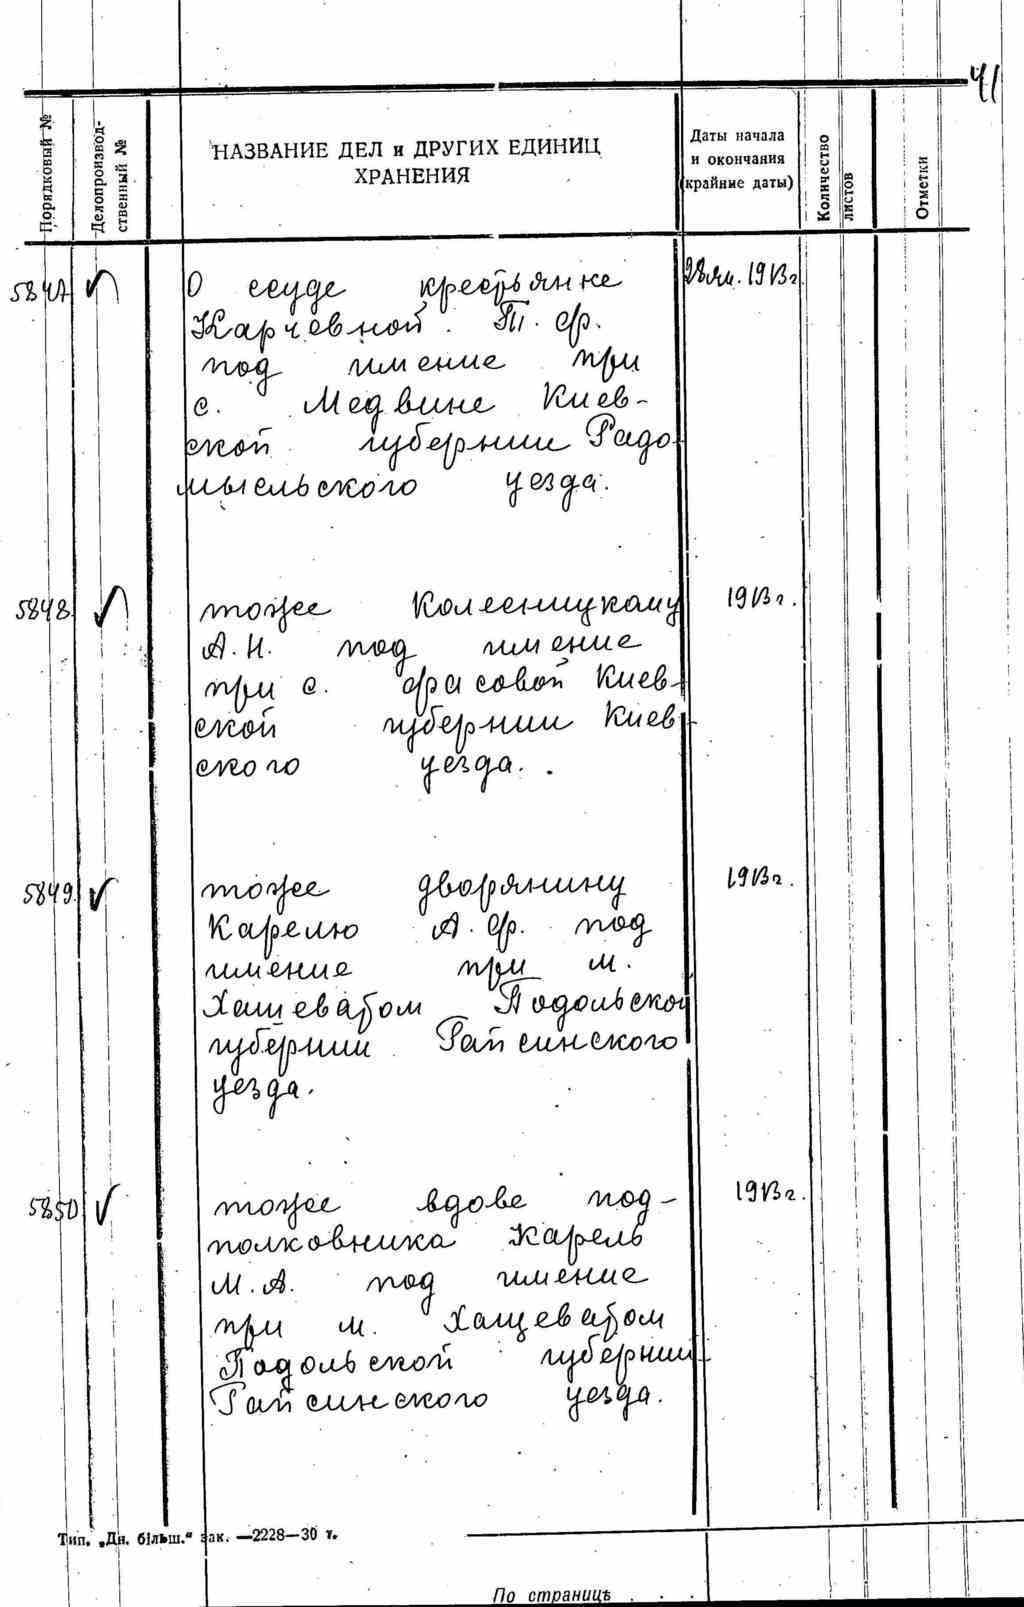 41
Порядковый №
Делопроизвод-
ственный №
НАЗВАНИЕ ДЕЛ и ДРУГИХ ЕДИНИЦ
ХРАНЕНИЯ
Даты начала
и окончания
(крайние даты)
Количество
листов
Отметки
5847 О ссуде крестьянке 28 ян. 1913 г.
Карчевной Т. Ф.
под имение при
с. Медвине Киев-
ской губернии Радо-
мысльского уезда.
5848. тоже Колесницкому 1913 г.
А. Н. под имение
при с. Фасовой Киев-
ской губернии Киев-
ского уезда.
5849. тоже дворянину 1913 г.
Карелю А. Ф. под
имение при м.
Хащеватом Подольской
губернии Гайсинского
уезда.
5850 тоже вдове под- 1913 г.
полковника Карель
М. А. под имение
при м. Хащеватом
Подольской губернии
Гайсинского уезда.
Тип. „Дн. більш." зак. —2228—30 т.
По страницѣ . . .